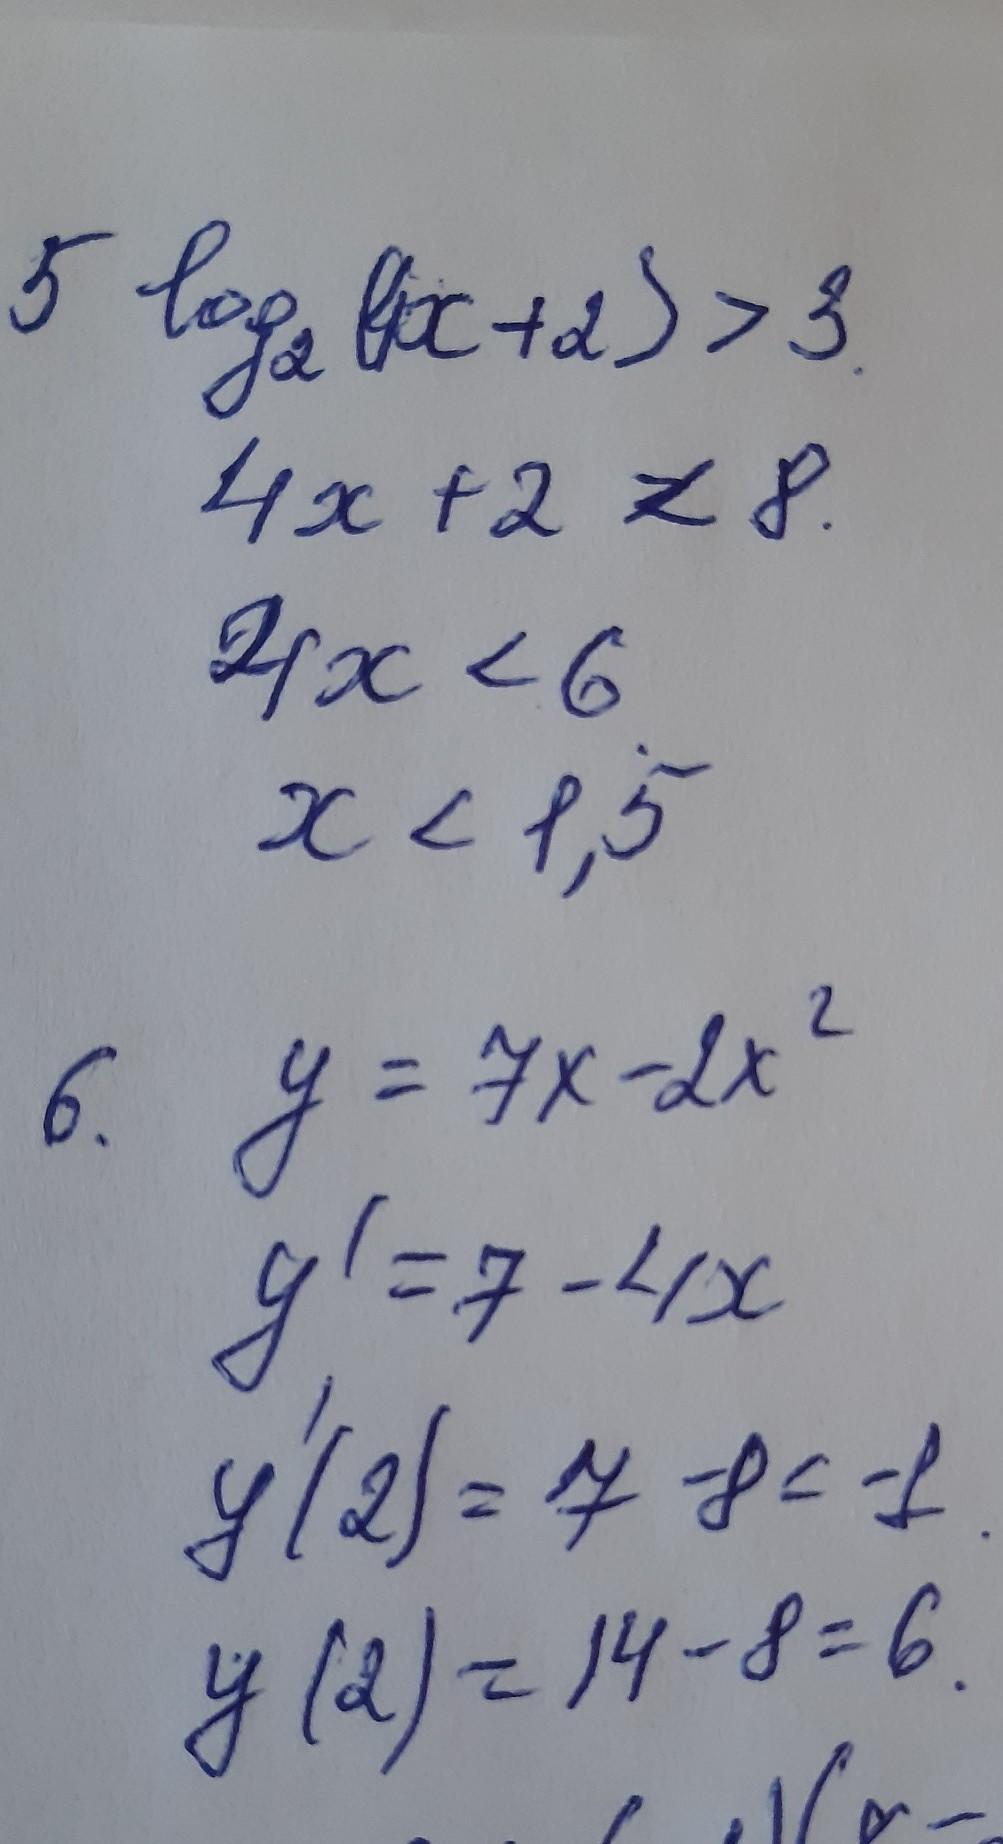 5 log₂(4x+2) > 3.
4x + 2 < 8.
4x < 6
x < 1,5
6. y = 7x - 2x²
y' = 7 - 4x
y'(2) = 7 - 8 = -1.
y(2) = 14 - 8 = 6.